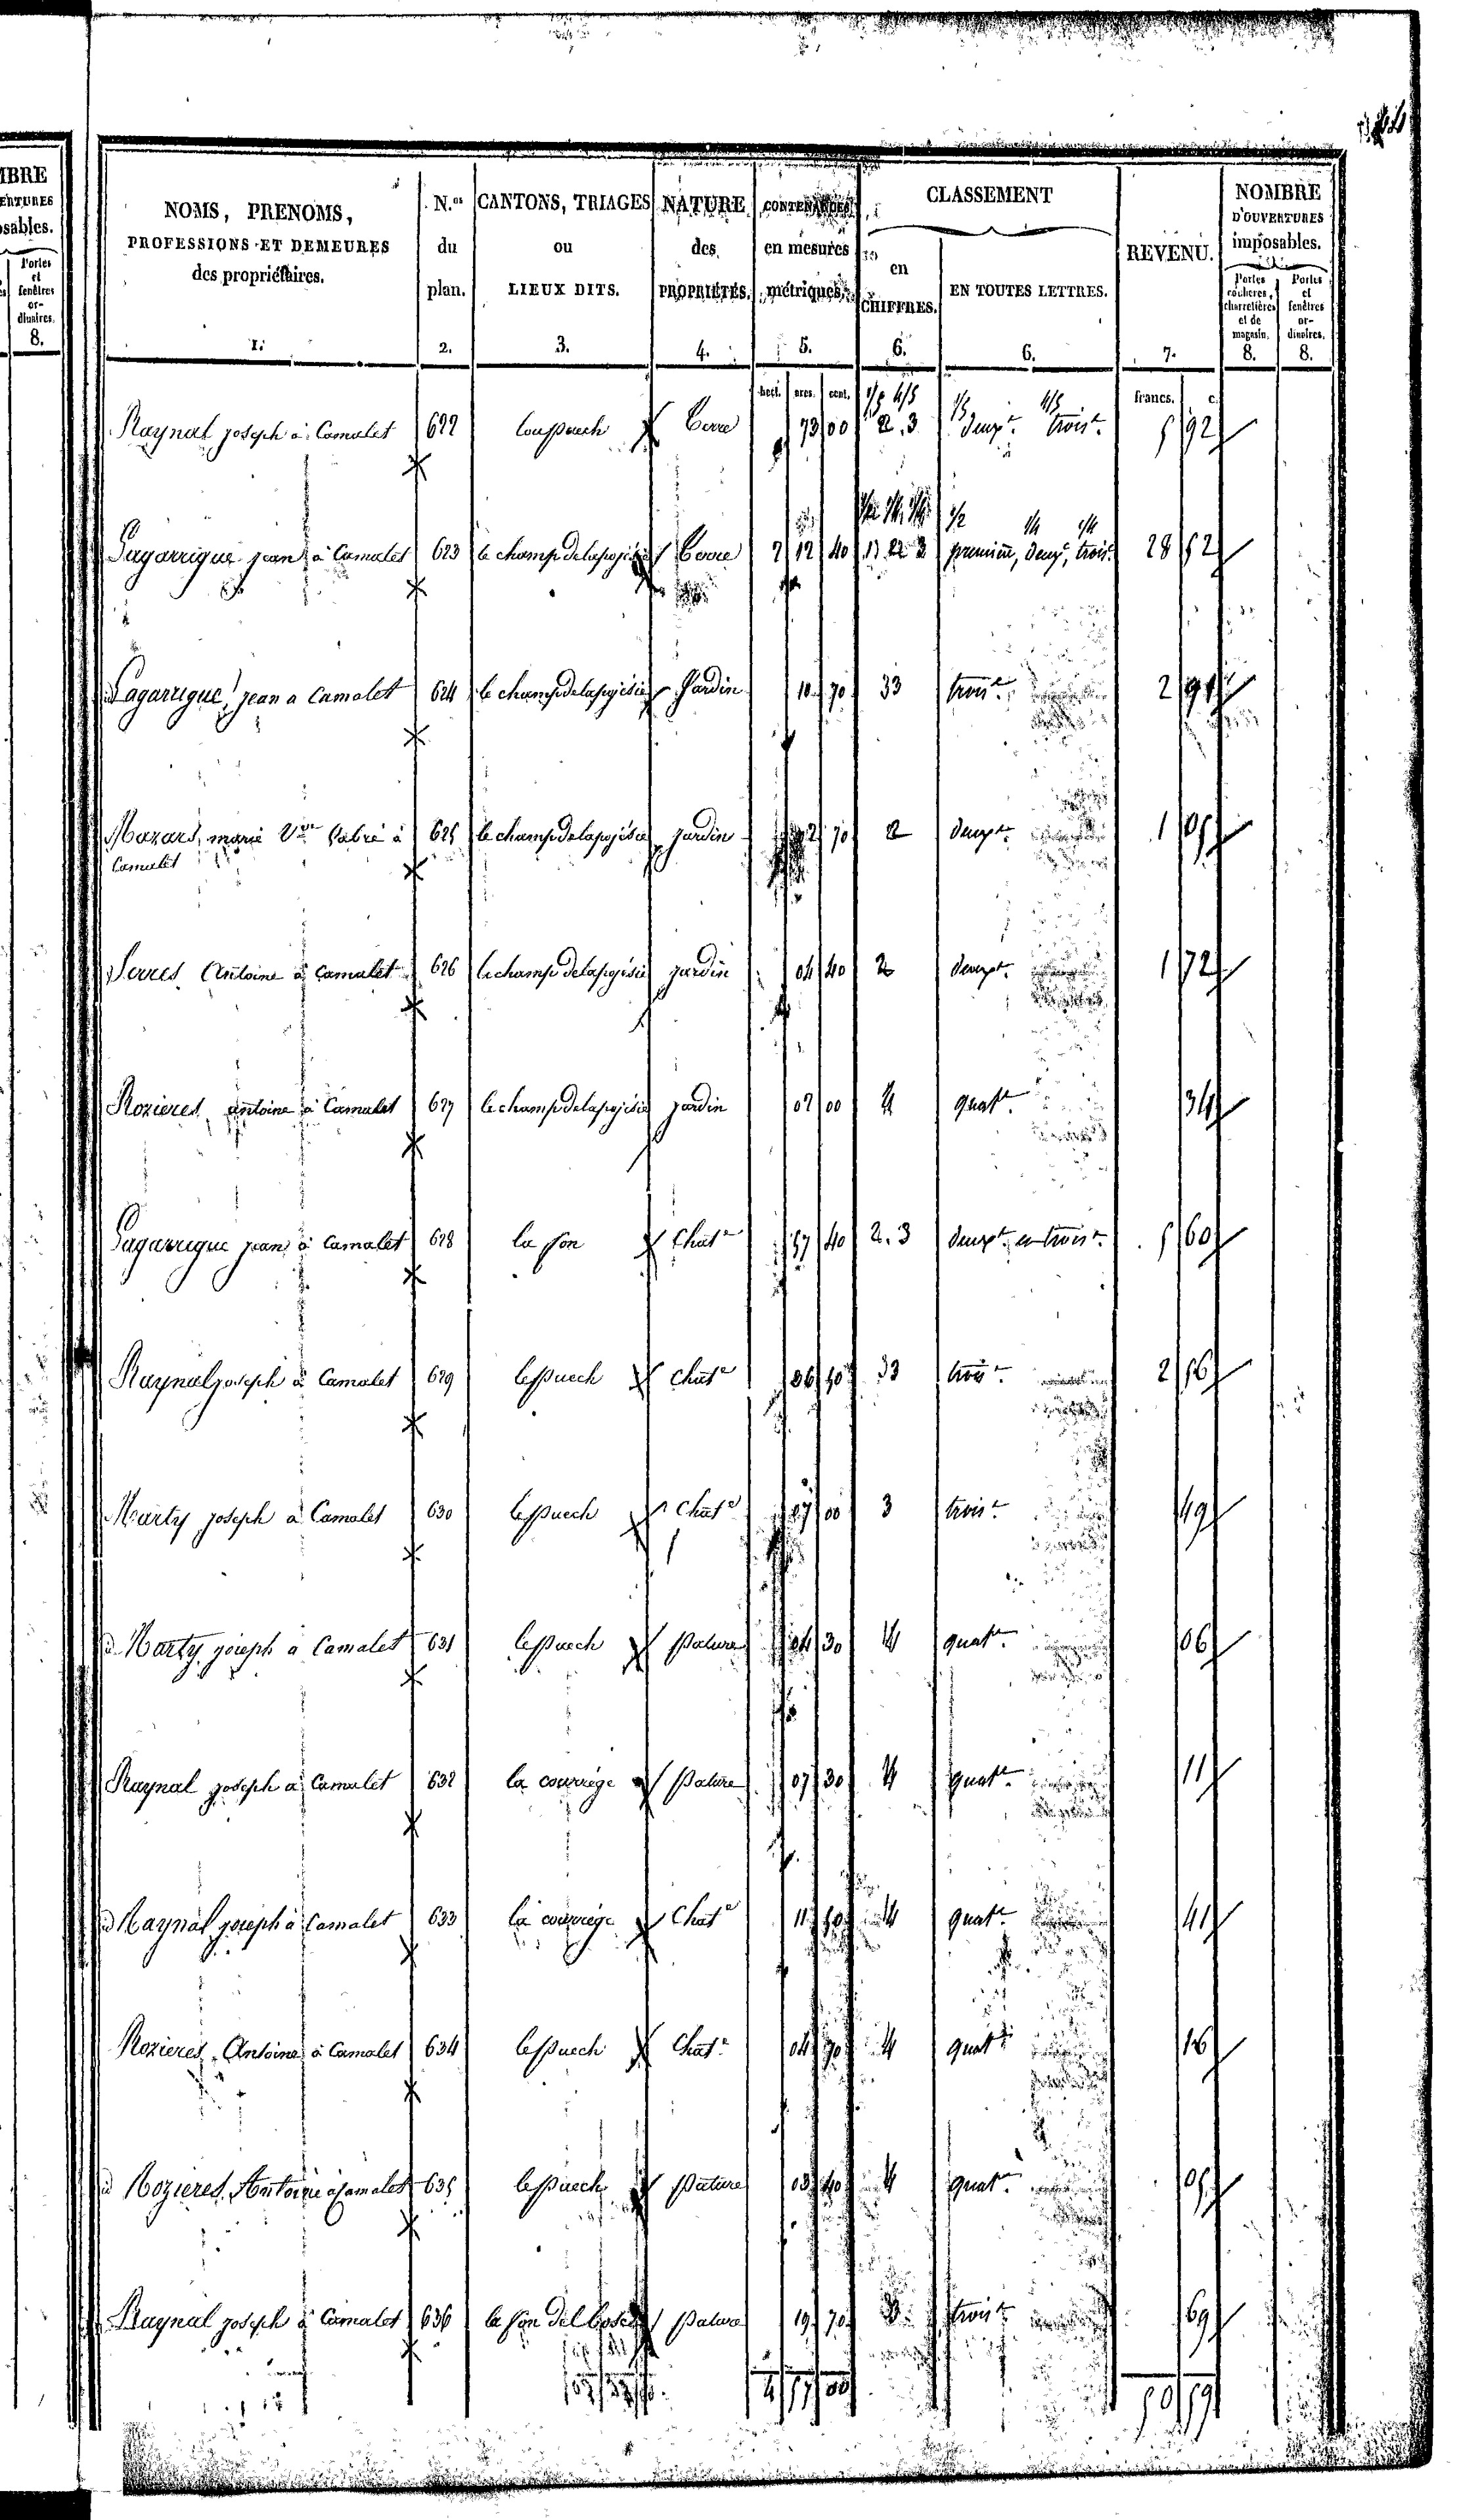 MBRE
ERTURES
osables.
Portes
et
fenêtres
or-
dinaires.
8.
NOMS, PRENOMS,
PROFESSIONS ET DEMEURES
des propriétaires.
1.
N.os
du
plan.
2.
CANTONS, TRIAGES
ou
LIEUX DITS.
3.
NATURE
des
PROPRIÉTÉS.
4.
CONTENANCES
en mesures
métriques.
5.
CLASSEMENT
en
CHIFFRES.
6.
EN TOUTES LETTRES.
6.
REVENU.
7.
NOMBRE
D'OUVERTURES
imposables.
Portes
cochères,
charretières
et de
magasin.
8.
Portes
et
fenêtres
or-
dinaires.
8.
hect. ares. cent. francs. c.
1/5 4/5 1/5 4/5
Raynal joseph à Camalet 622 loupuech Terre 73 00 2.3 deuxe. troise. 5 92
1/2 1/4 1/4 1/2 1/4 1/4
Lagarrigue jean à Camalet 623 le champ delapojésie Terre 2 12 40 1 2 3 première, deuxe, trois. 28 52
d Lagarrigue jean a Camalet 624 le champ delapojésie Jardin 10 70 3 troise. 2 91
Mazars, marie Vve fabre à 625 le champ delapojésie jardin 02 70 2 deuxe. 1 05
Camalet
Serres Antoine à Camalet 626 le champ delapojésie jardin 04 40 2 deuxe. 1 72
Rozieres antoine à Camalet 627 le champ delapojésie jardin 02 00 4 quate. 34
Lagarrigue jean à Camalet 628 la fon Chate 57 40 2.3 deuxe. et troise. 5 60
Raynal joseph à Camalet 629 lepuech chate 36 50 3 troise. 2 56
Marty joseph à Camalet 630 lepuech Chate 07 00 3 troise. 49
d Marty joseph à Camalet 631 lepuech pature 04 30 4 quate. 06
Raynal joseph à Camalet 632 la courrège pature 07 30 4 quate. 11
d Raynal joseph à Camalet 633 la courrège Chate 11 4 quate. 41
Rozieres Antoine à Camalet 634 lepuech Chate 04 70 4 quate. 16
d Rozieres Antoine à Camalet 635 lepuech pature 03 40 4 quate. 05
Raynal joseph à Camalet 636 la fon del bosc pature 19 70 3 troise. 69
4 57 00 50 59